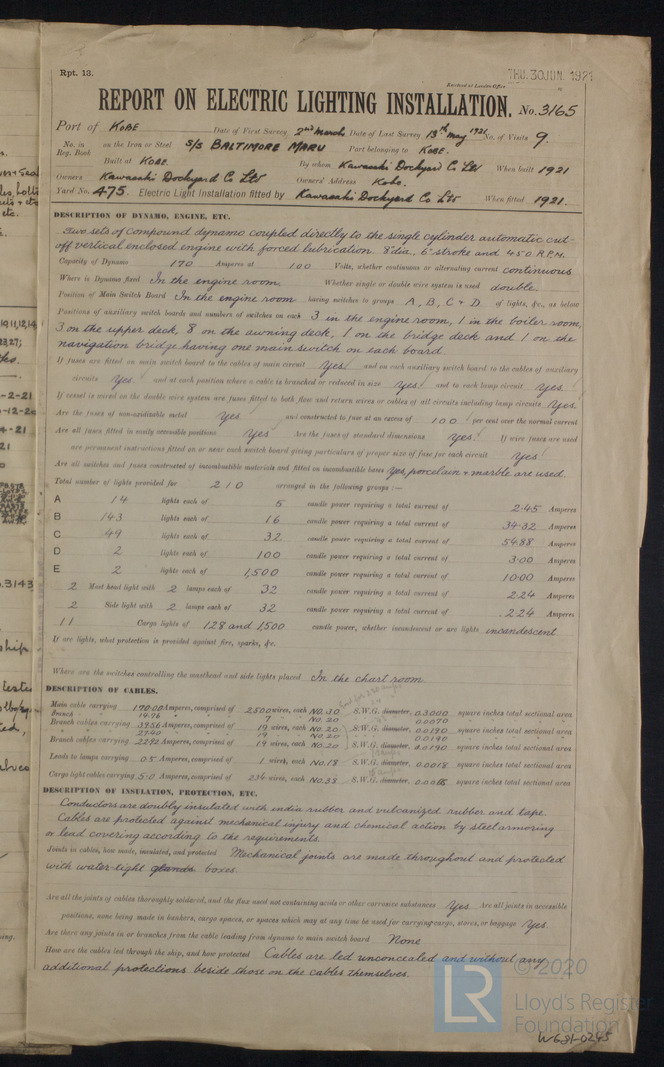 Rpt. 13.
THU. 30 JUN. 1921
Received at London Office
REPORT ON ELECTRIC LIGHTING INSTALLATION. No. 3165
Port of Kobe Date of First Survey 2nd March Date of Last Survey 13th May 1921 No. of Visits 9.
No. in Reg. Book on the Iron or Steel S/S BALTIMORE MARU Port belonging to Kobe.
Built at Kobe. By whom Kawasaki Dockyard Co Ltd When built 1921
Owners Kawasaki Dockyard Co Ltd Owners' Address Kobe.
Yard No. 475. Electric Light Installation fitted by Kawasaki Dockyard Co Ltd When fitted 1921.
DESCRIPTION OF DYNAMO, ENGINE, ETC.
Two sets of compound dynamo coupled directly to the single cylinder automatic cut-
off vertical enclosed engine with forced lubrication. 8" dia, 6" stroke and 450 R.P.M.
Capacity of Dynamo 170 Amperes at 100 Volts, whether continuous or alternating current continuous
Where is Dynamo fixed In the engine room. Whether single or double wire system is used double.
Position of Main Switch Board In the engine room having switches to groups A, B, C & D of lights, &c., as below
Positions of auxiliary switch boards and numbers of switches on each 3 in the engine room, 1 in the boiler room,
3 on the upper deck, 8 on the awning deck, 1 on the bridge deck and 1 on the
navigation bridge having one main switch on each board.
If fuses are fitted on main switch board to the cables of main circuit Yes and on each auxiliary switch board to the cables of auxiliary
circuits Yes and at each position where a cable is branched or reduced in size Yes and to each lamp circuit Yes.
If vessel is wired on the double wire system are fuses fitted to both flow and return wires or cables of all circuits including lamp circuits Yes.
Are the fuses of non-oxidizable metal Yes and constructed to fuse at an excess of 100 per cent over the normal current
Are all fuses fitted in easily accessible positions Yes Are the fuses of standard dimensions Yes. If wire fuses are used
are permanent instructions fitted on or near each switch board giving particulars of proper size of fuse for each circuit Yes
Are all switches and fuses constructed of incombustible materials and fitted on incombustible bases Yes, porcelain & marble are used.
Total number of lights provided for 210 arranged in the following groups :—
A 14 lights each of 5 candle power requiring a total current of 2.45 Amperes
B 143 lights each of 16 candle power requiring a total current of 34.32 Amperes
C 49 lights each of 32 candle power requiring a total current of 54.88 Amperes
D 2 lights each of 100 candle power requiring a total current of 3.00 Amperes
E 2 lights each of 1,500 candle power requiring a total current of 10.00 Amperes
2 Mast head light with 2 lamps each of 32 candle power requiring a total current of 2.24 Amperes
2 Side light with 2 lamps each of 32 candle power requiring a total current of 2.24 Amperes
11 Cargo lights of 128 and 1,500 candle power, whether incandescent or arc lights incandescent.
If arc lights, what protection is provided against fire, sparks, &c.
Where are the switches controlling the masthead and side lights placed In the chart room
DESCRIPTION OF CABLES.
Main cable carrying 170.00 Amperes, comprised of 2500 wires, each No. 30 S.W.G. diameter, 0.3000 square inches total sectional area
Branch 14.96 7 No. 20 0.0070
Branch cables carrying 39.56 Amperes, comprised of 19 wires, each No. 20 S.W.G. diameter, 0.0190 square inches total sectional area
29.40 19 No. 20 0.0190
Branch cables carrying 22.92 Amperes, comprised of 19 wires, each No. 20 S.W.G. diameter, 0.0190 square inches total sectional area
Leads to lamps carrying 0.5 Amperes, comprised of 1 wires, each No. 18 S.W.G. diameter, 0.0018 square inches total sectional area
Cargo light cables carrying 5.0 Amperes, comprised of 234 wires, each No. 38 S.W.G. diameter, square inches total sectional area
DESCRIPTION OF INSULATION, PROTECTION, ETC.
Conductors are doubly insulated with india rubber and vulcanized rubber and tape.
Cables are protected against mechanical injury and chemical action by steel armoring
or lead covering according to the requirements.
Joints in cables, how made, insulated, and protected Mechanical joints are made throughout and protected
with water tight glands. boxes.
Are all the joints of cables thoroughly soldered, and the flux used not containing acids or other corrosive substances Yes. Are all joints in accessible
positions, none being made in bunkers, cargo spaces, or spaces which may at any time be used for carrying cargo, stores, or baggage Yes.
Are there any joints in or branches from the cable leading from dynamo to main switch board None
How are the cables led through the ship, and how protected Cables are led unconcealed and without any
additional protections beside those on the cables themselves.
© 2020
LR
Lloyd's Register
Foundation
W681-0245